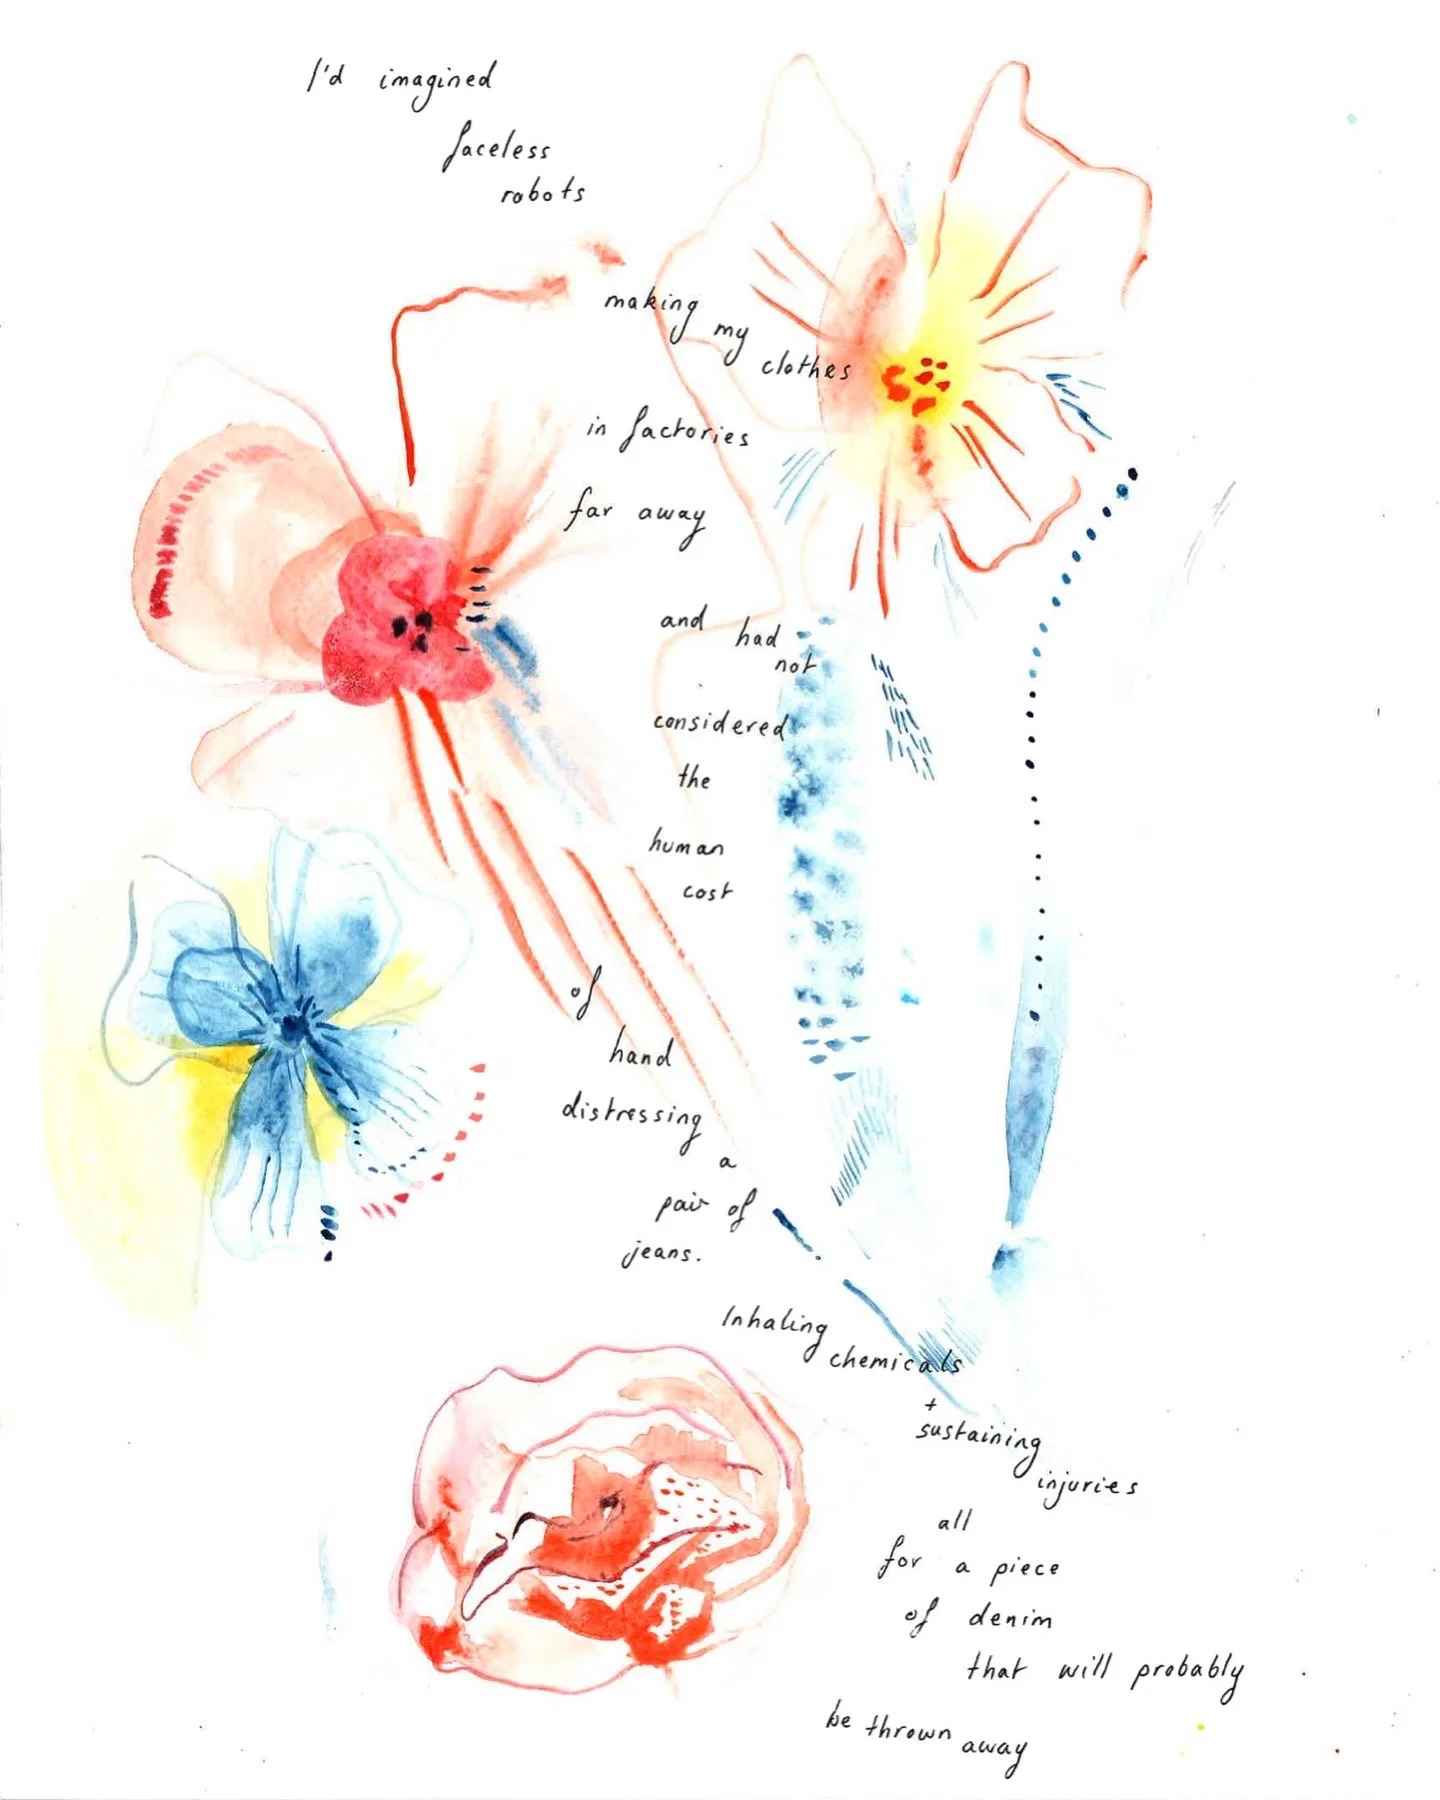 I'd imagined
faceless
robots
making
my
clothes
in factories
far away
and had
not
considered
the
human
cost
of
hand
distressing
a
pair of
jeans.
Inhaling
chemicals
+
sustaining
injuries
all
for a piece
of denim
that will probably
be thrown away